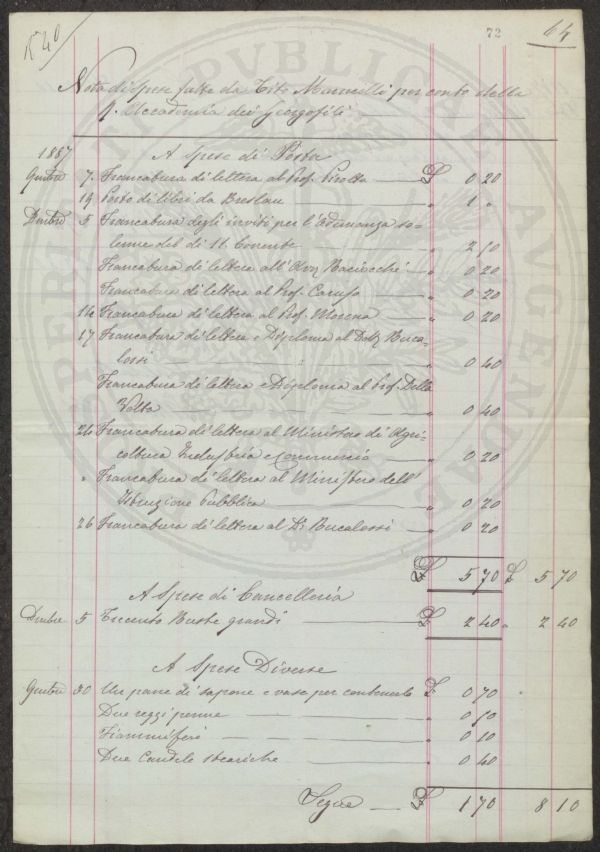 1540
72
64
Nota di spese fatte da Tito Marucelli per conto della
R. Accademia dei Georgofili
1887
A Spese di Posta
7. Francatura di lettera al Prof. Pirotta £ 0 20
19 Porto di libri da Breslau " 1 "
5 Francatura degli inviti per l'Adunanza so-
lenne del dì 11. Corrente " 2 50
Francatura di lettera all'Avv. Baciocchi " 0 20
Francatura di lettera al Prof. Caruso " 0 20
14 Francatura di lettera al Prof. Morena " 0 20
17 Francatura di lettera e Diploma al Dott. Buca-
lossi " 0 40
Francatura di lettera e Diploma al Prof. Della
Volta " 0 40
24 Francatura di lettera al Ministero di Agri-
coltura Industria e Commercio " 0 20
" Francatura di lettera al Ministero dell'
Istruzione Pubblica " 0 20
26 Francatura di lettera al Dr. Bucalossi " 0 20
£ 5 70 £ 5 70
A Spese di Cancelleria
5 Trecento Buste grandi £ 2 40 " 2 40
A Spese Diverse
20 Un pane di sapone e vaso per contenerlo £ 0 70
Due reggi penne " 0 50
Fiammiferi " 0 10
Due Candele steariche " 0 40
Segue £ 1 70 8 10